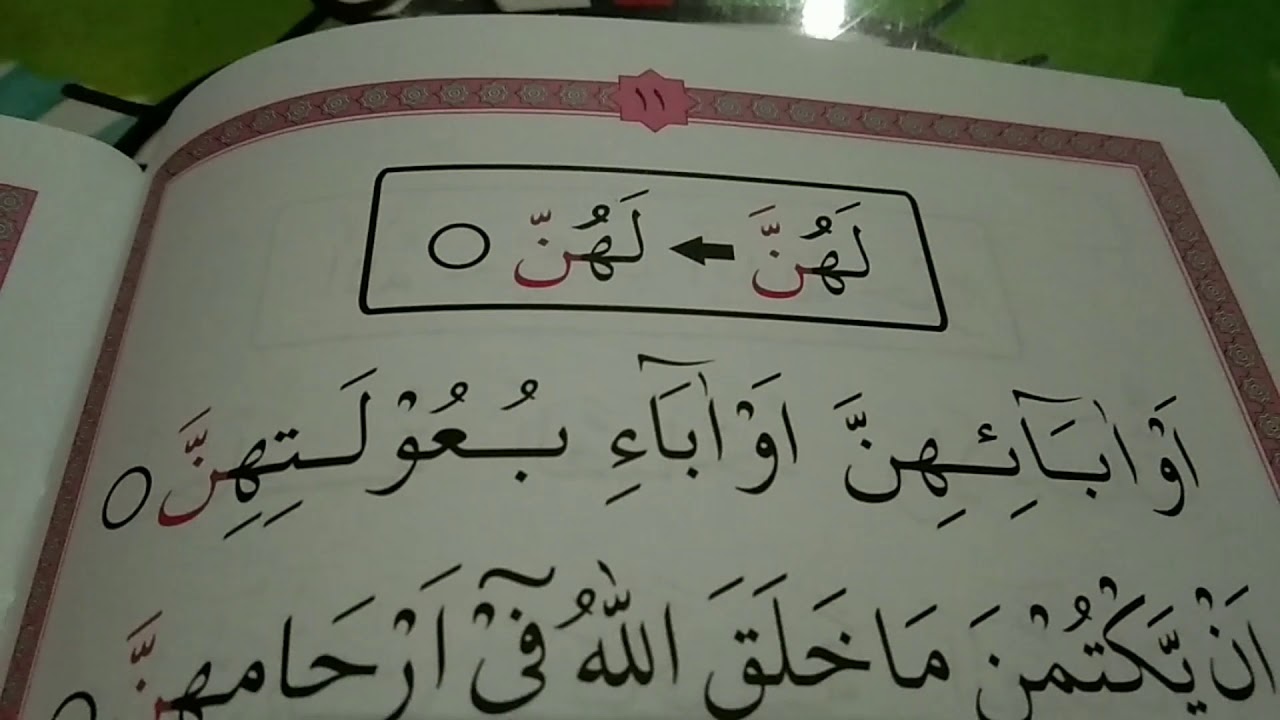 ١١
لَهُنَّ ← لَهُنّ ○
اَوْ اٰبَآئِهِنَّ اَوْ اٰبَآءِ بُعُوْلَتِهِنَّ ○
اَنْ يَّكْتُمْنَ مَا خَلَقَ اللّٰهُ فِيْٓ اَرْحَامِهِنَّ ○